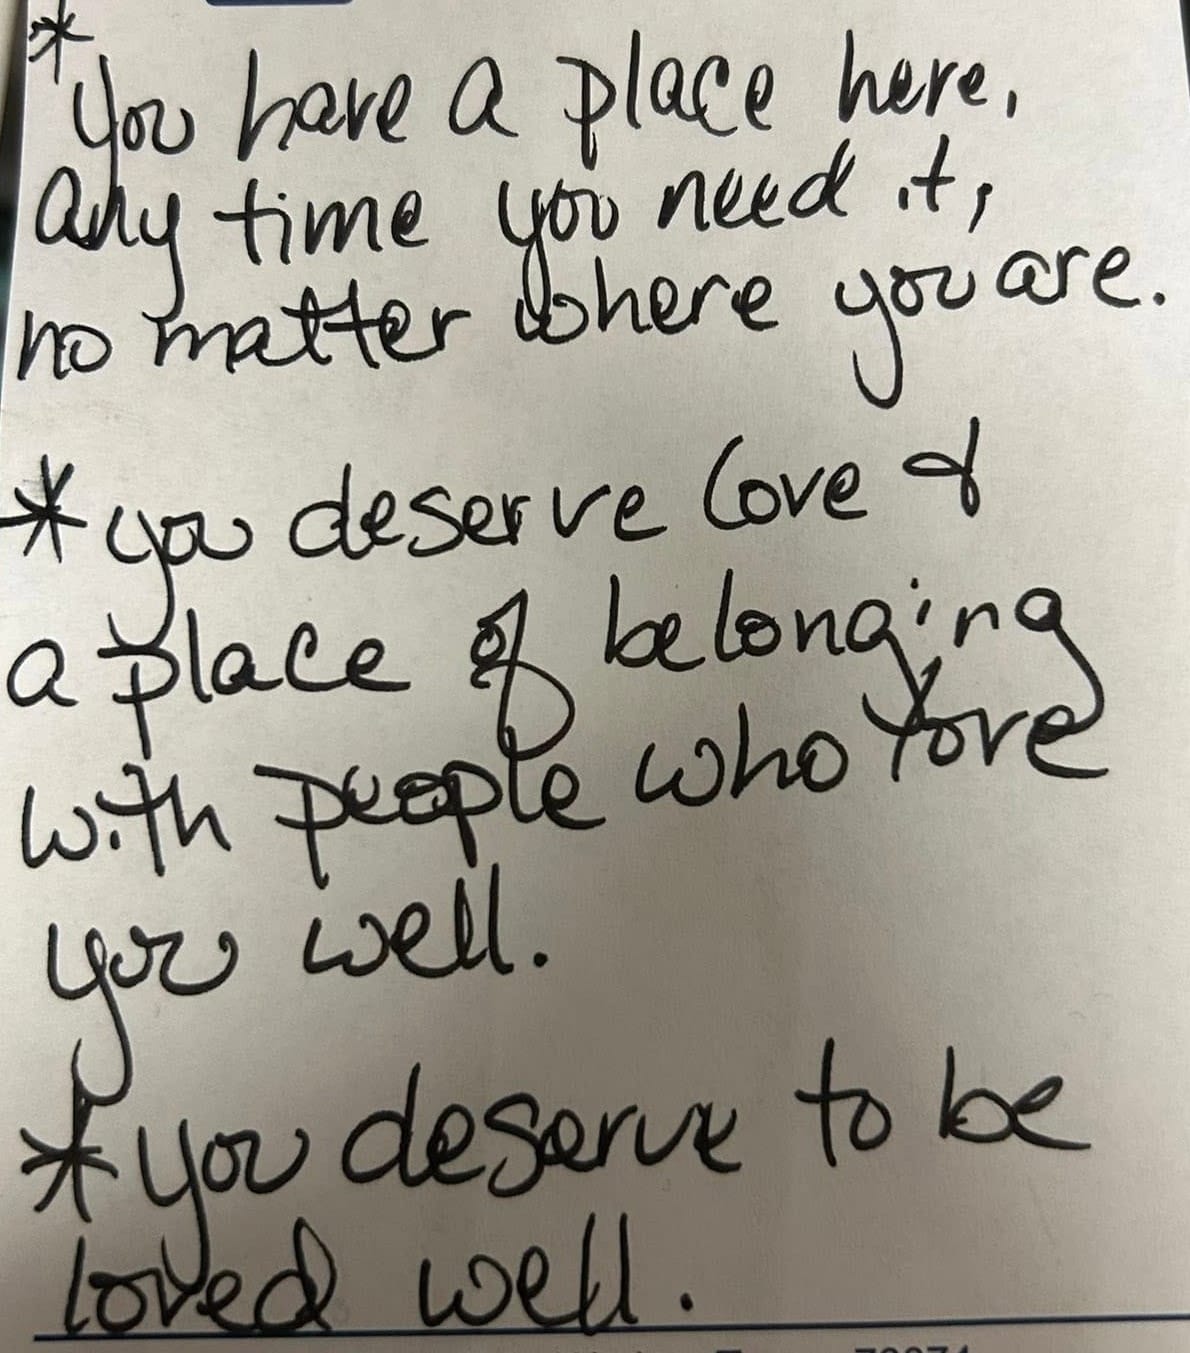 * You have a place here,
any time you need it,
no matter where you are.
* you deserve love &
a place of belonging
with people who love
you well.
* you deserve to be
loved well.